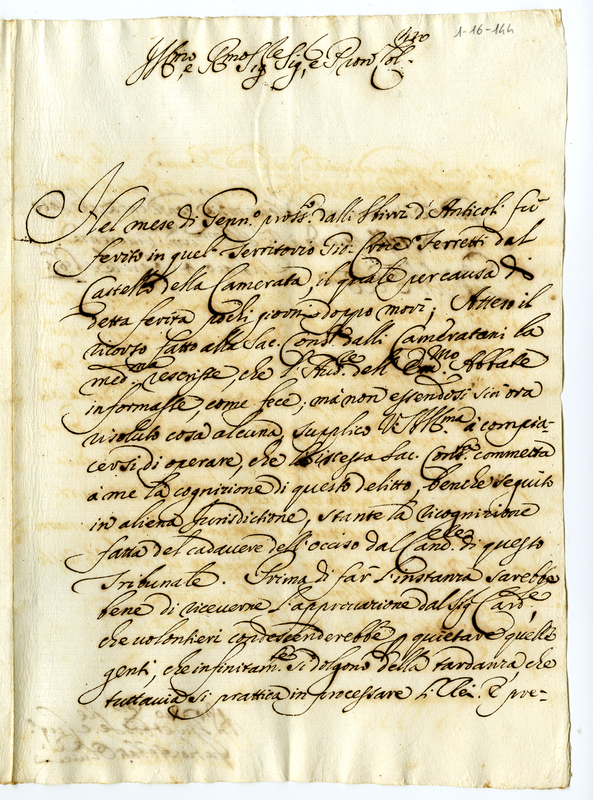 1-16-144
Ill.mo e R.mo Sig.r Sig.r e P.ron Col.mo
Nel mese di Genn.o pross.o dalli Sbirri d'Anticoli fù
ferito in quel Territorio Gio. Croce Ferretti dal
Castello della Camerata, il quale per causa di
detta ferita pochi giorni doppo morì; Atteso il
ricorso fatto alla Sac. Cons.ta dalli Cameratani la
med.ma rescrisse, che l'Aud.re dell' Em.mo Abbate
informasse, come fece; mà non essendosi sin'ora
risoluto cosa alcuna, supplico VS Ill.ma à compia-
cersi di operare, che l'istessa Sac. Cons.ta commetta
à me la cognizione di questo delitto, benche seguito
in aliena Jurisdictione, stante la ricognizione
fatta del cadavere dell'occiso dal Canc.elle di questo
Tribunale. Prima di far l'instanza sarebbe
bene di riceverne l'approvazione dal Sig. Card.le
che volontieri condescenderebbe p quietare quelle
genti, che infinitam.te si dolgono della tardanza che
tuttavia si prattica in processare li Rei. E pre-